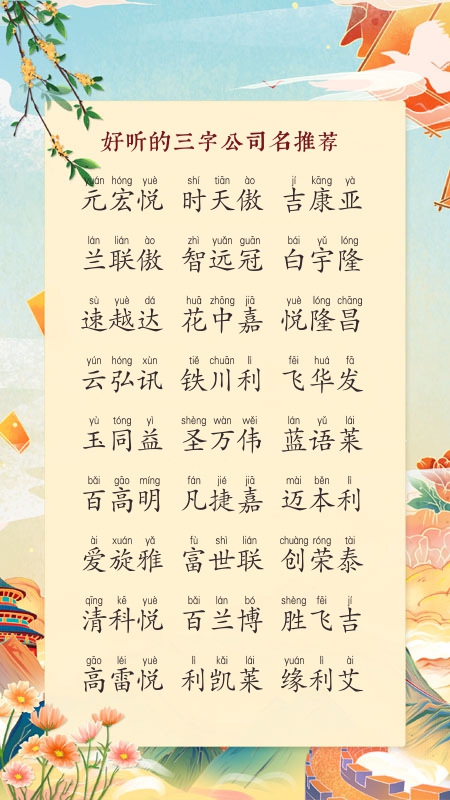 好听的三字公司名推荐
yuán hóng yuè shí tiān ào jí kāng yà
元宏悦 时天傲 吉康亚
lán lián ào zhì yuǎn guān bái yǔ lóng
兰联傲 智远冠 白宇隆
sù yuè dá huā zhōng jiā yuè lóng chāng
速越达 花中嘉 悦隆昌
yún hóng xùn tiě chuān lì fēi huá fā
云弘讯 铁川利 飞华发
yù tóng yì shèng wàn wěi lán yǔ lái
玉同益 圣万伟 蓝语莱
bǎi gāo míng fán jié jiā mài běn lì
百高明 凡捷嘉 迈本利
ài xuán yǎ fù shì lián chuàng róng tài
爱旋雅 富世联 创荣泰
qīng kē yuè bǎi lán bó shèng fēi jí
清科悦 百兰博 胜飞吉
gāo léi yuè lì kǎi lái yuán lì ài
高雷悦 利凯莱 缘利艾